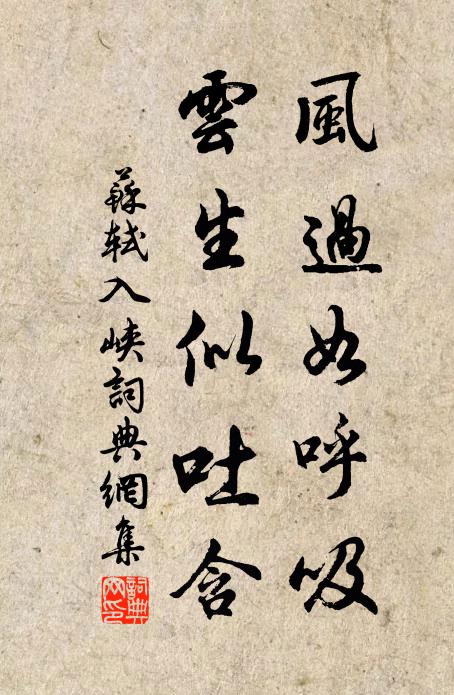 風過如呼吸
雲生似吐含
蘇軾入峽詞典網集
詞典
网印